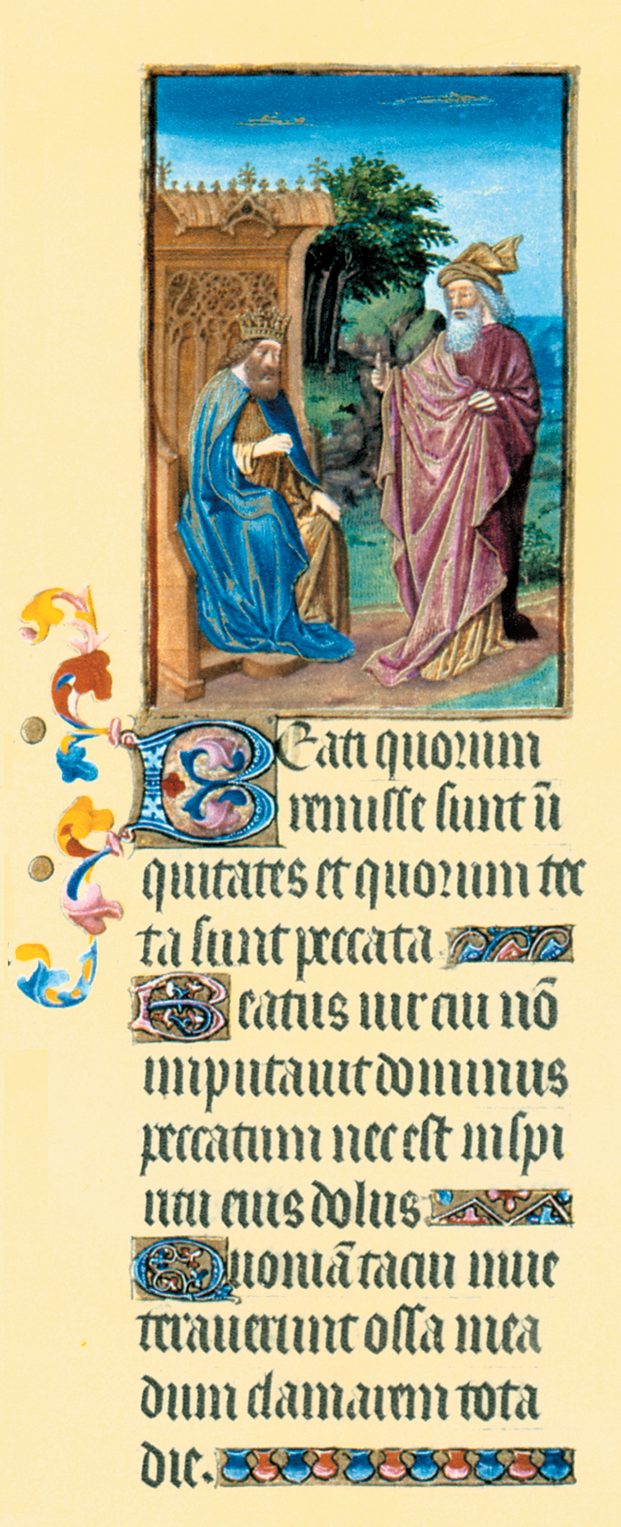 Beati quorum
remisse sunt īi
quitates et quorum tec
ta sunt peccata
Beatus uir cui nō
imputauit dominus
peccatum nec est in spi
ritu eius dolus
Quoniā tacui inue
terauerunt ossa mea
dum clamarem tota
die.